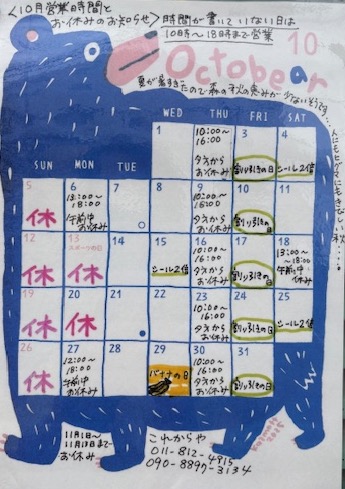 <10月営業時間と
お休みのお知らせ>
時間が書いていない日は
10時〜18時まで営業
10
Octobear
夏が暑すぎたので森の
恵みが少ないそうです...
SUN MON TUE WED THU FRI SAT
1 2 3 4
10:00〜
16:00
夕方から
お休み
割り引きの日
シール2倍
5 6 7 8 9 10 11
休
12:00〜
18:00
午前中
お休み
10:00〜
16:00
夕方から
お休み
割り引きの日
12 13 14 15 16 17 18
休
スポーツの日
休
シール2倍
10:00〜
16:00
夕方から
お休み
割り引きの日
13:00〜
18:00
午前中
お休み
19 20 21 22 23 24 25
休
休
10:00〜
16:00
夕方から
お休み
割り引きの日
シール2倍
26 27 28 29 30 31
休
12:00〜
18:00
午前中
お休み
バナナの日
10:00〜
16:00
夕方から
お休み
割り引きの日
11月1日〜
お休み
これからや
011-812-4915
090-8897-3134